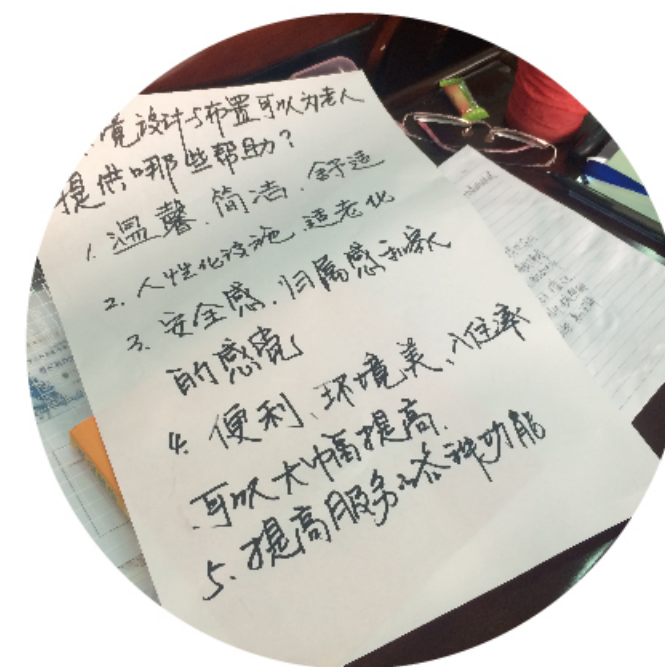 境设计与布置可以为老人
提供哪些帮助？
1. 温馨、简洁、舒适
2. 人性化设施、适老化
3. 安全感、归属感和家人
的感觉
4. 便利、环境美、入住率
可以大幅提高.
5. 提高服务的各种功能